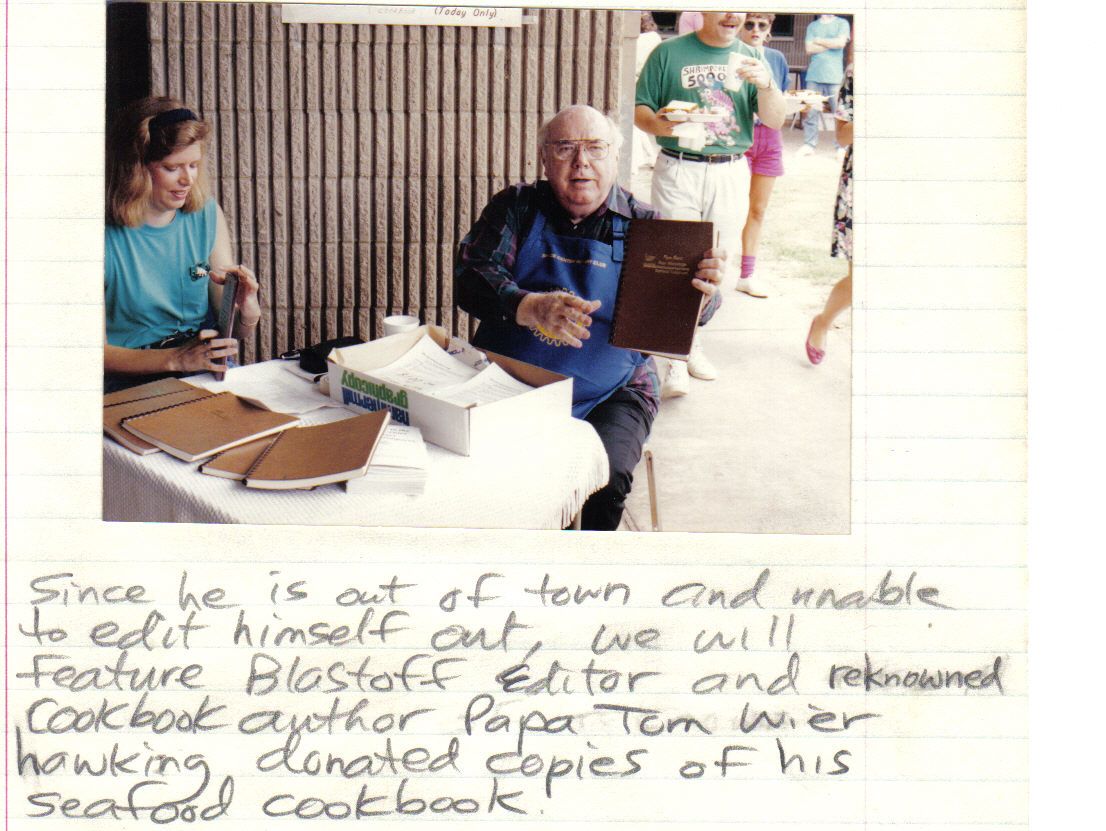 (Today Only)
5000
CENTER ROTARY CLUB
graphicopy
Since he is out of town and unable
to edit himself out, we will
feature Blastoff Editor and reknowned
Cookbook author Papa Tom Wier
hawking donated copies of his
seafood cookbook.